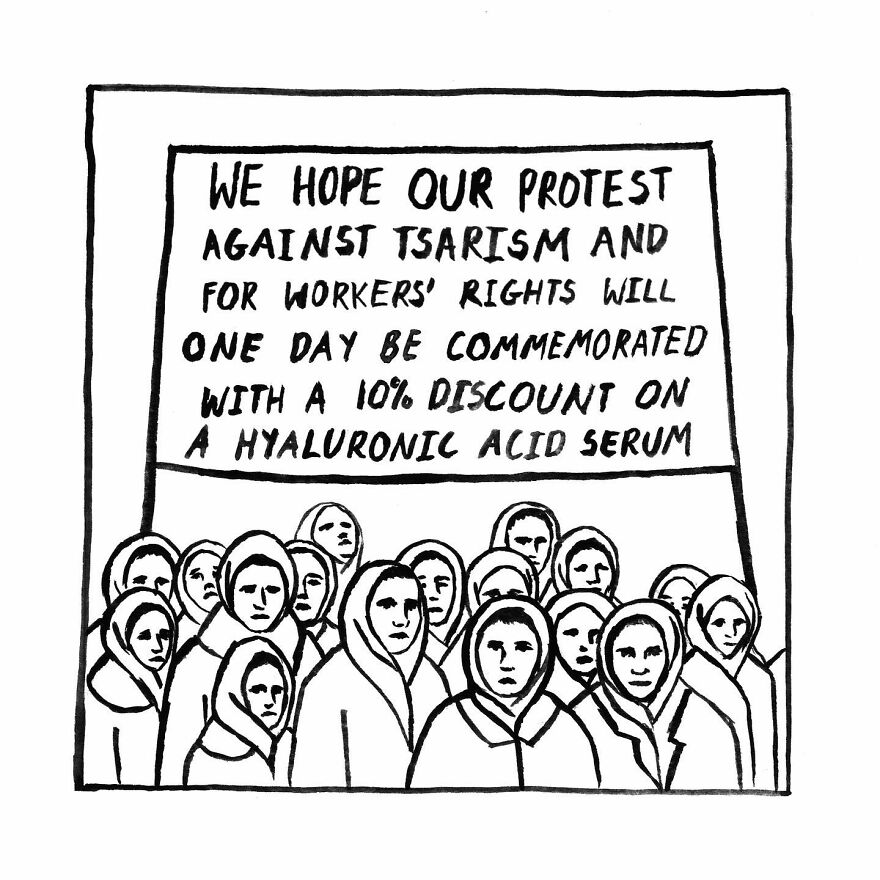 WE HOPE OUR PROTEST
AGAINST TSARISM AND
FOR WORKERS' RIGHTS WILL
ONE DAY BE COMMEMORATED
WITH A 10% DISCOUNT ON
A HYALURONIC ACID SERUM